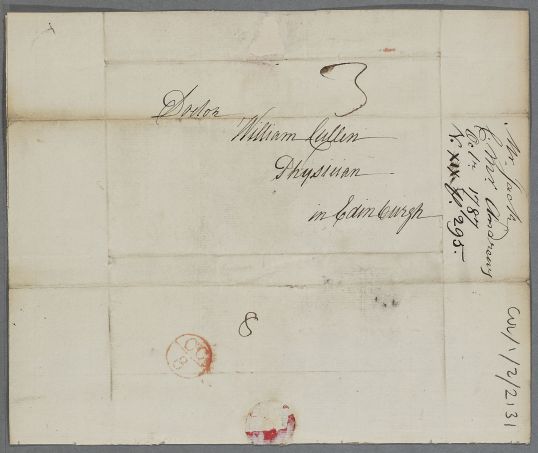 3
Doctor
William Cullen
Physician
in Edinburgh
Mr. Jack
C. Mrs Andrew
Oct. 1787
V. XIX. p. 295.
8
OC
8
CUL/1/2/2131